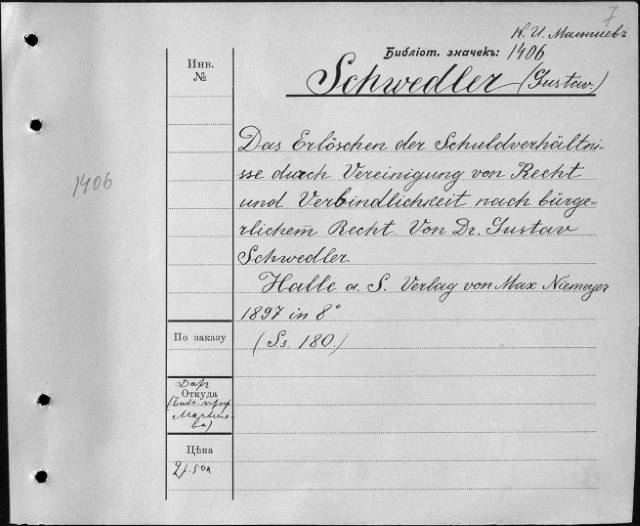 7
К. И. Малышевъ
Библіот. значекъ: 1406
Schwedler (Gustav.)
Инв.
№
1406
Das Erlöschen der Schuldverhältni-
sse durch Vereinigung von Recht
und Verbindlichkeit nach bürge-
rlichem Recht. Von Dr. Gustav
Schwedler
Halle a. S. Verlag von Max Niemeyer
1897 in 8°
По заказу
(Ss. 180.)
Даръ
Откуда
Цѣна